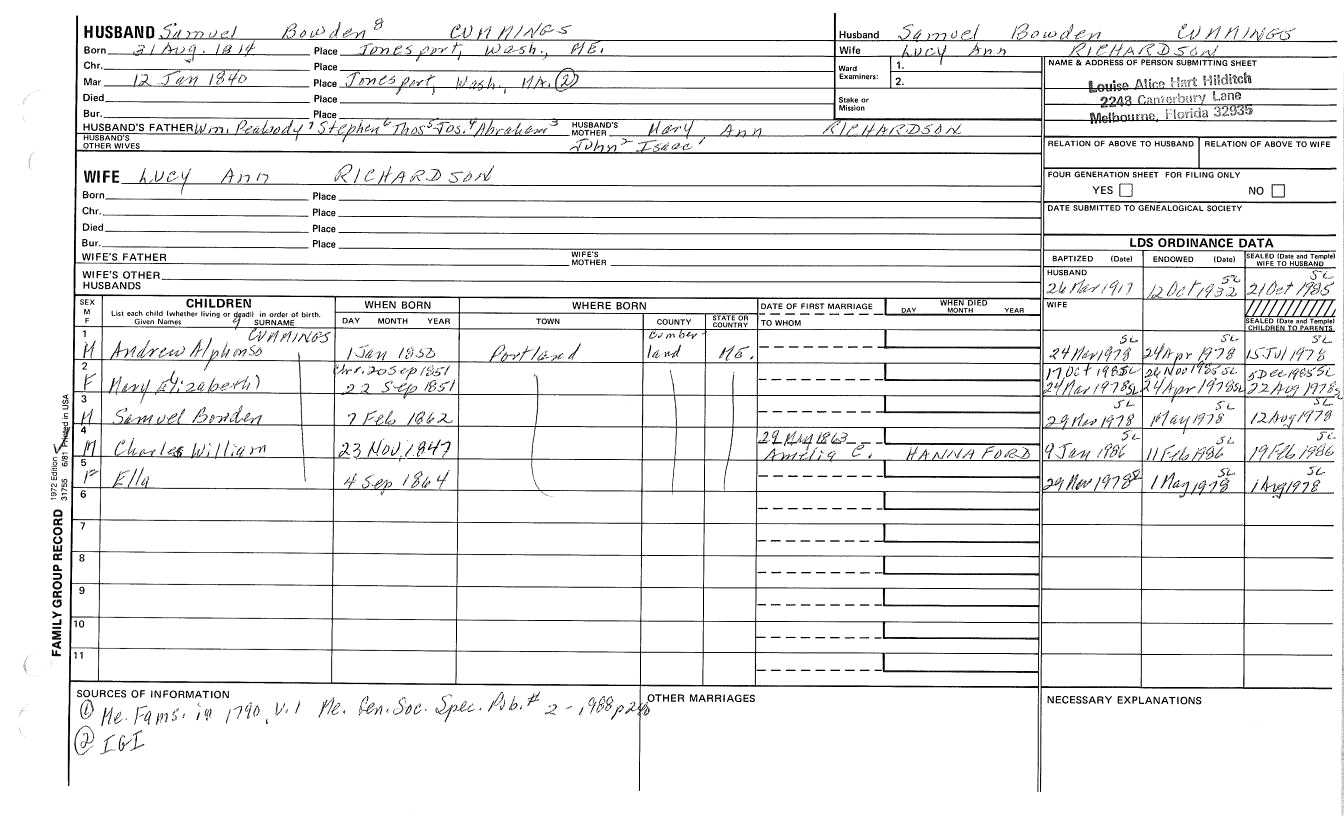 HUSBAND Samuel Bowden 8 CUMMINGS
Born 31 Aug. 1814 Place Jonesport, Wash., ME.
Chr. Place
Mar 12 Jan 1840 Place Jonesport, Wash., MA. (2)
Died Place
Bur. Place
HUSBAND'S FATHER Wm. Peabody 7 Stephen 6 Thos 5 Jos. 4 Abraham 3 HUSBAND'S MOTHER Mary Ann RICHARDSON
HUSBAND'S OTHER WIVES John 2 Isaac 1
WIFE Lucy Ann RICHARDSON
Born Place
Chr. Place
Died Place
Bur. Place
WIFE'S FATHER WIFE'S MOTHER
WIFE'S OTHER HUSBANDS
Husband Samuel Bowden CUMMINGS
Wife Lucy Ann RICHARDSON
Ward Examiners: 1. 2.
Stake or Mission
NAME & ADDRESS OF PERSON SUBMITTING SHEET
Louise Alice Hart Hilditch
2248 Canterbury Lane
Melbourne, Florida 32935
RELATION OF ABOVE TO HUSBAND RELATION OF ABOVE TO WIFE
FOUR GENERATION SHEET FOR FILING ONLY
YES NO
DATE SUBMITTED TO GENEALOGICAL SOCIETY
LDS ORDINANCE DATA
BAPTIZED (Date) ENDOWED (Date) SEALED (Date and Temple) WIFE TO HUSBAND
HUSBAND
26 Mar 1917 12 Oct 1932 SL 21 Oct 1985 SL
WIFE
SEALED (Date and Temple) CHILDREN TO PARENTS
SEX M F CHILDREN WHEN BORN WHERE BORN DATE OF FIRST MARRIAGE WHEN DIED
List each child (whether living or dead) in order of birth. DAY MONTH YEAR TOWN COUNTY STATE OR COUNTRY TO WHOM DAY MONTH YEAR
Given Names 9 SURNAME
1 M Andrew Alphonso CUMMINGS 1 Jan 1850 Portland Cumberland ME. 24 Mar 1978 24 Apr 1978 SL 15 Jul 1978 SL
2 Chr. 20 Sep 1851 17 Oct 1985 SL 26 Nov 1985 SL 5 Dec 1985 SL
F Mary Elizabeth 22 Sep 1851 24 Mar 1978 SL 24 Apr 1978 SL 22 Aug 1978 SL
3 M Samuel Bowden 7 Feb 1862 1 May 1978 SL 12 Aug 1978 SL
4 29 1863
M Charles William 23 Nov, 1847 Amelia C. HANNAFORD 9 Jan 1986 SL 11 Feb 1986 SL 19 Feb 1986 SL
5 F Ella 4 Sep 1864 29 Nov 1978 SL 1 May 1978 SL 1 Aug 1978 SL
6
7
8
9
10
11
FAMILY GROUP RECORD 1972 Edition 31755 6/81 Printed in USA
SOURCES OF INFORMATION
(1) Me. Fams. in 1790, V.1 Me. Gen. Soc. Spec. Pub. # 2 - 1988
(2) IGI
OTHER MARRIAGES
NECESSARY EXPLANATIONS